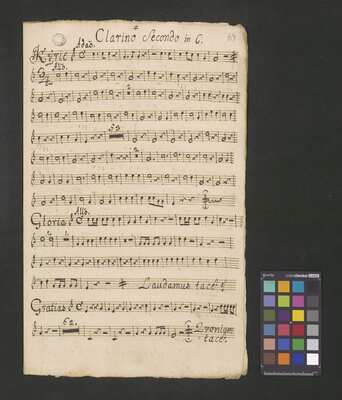 Clarino Secondo in C.
Kyrie Adag.
All.
Gloria All.
Laudamus tacet
Gratias
Qvoniam
tacet.